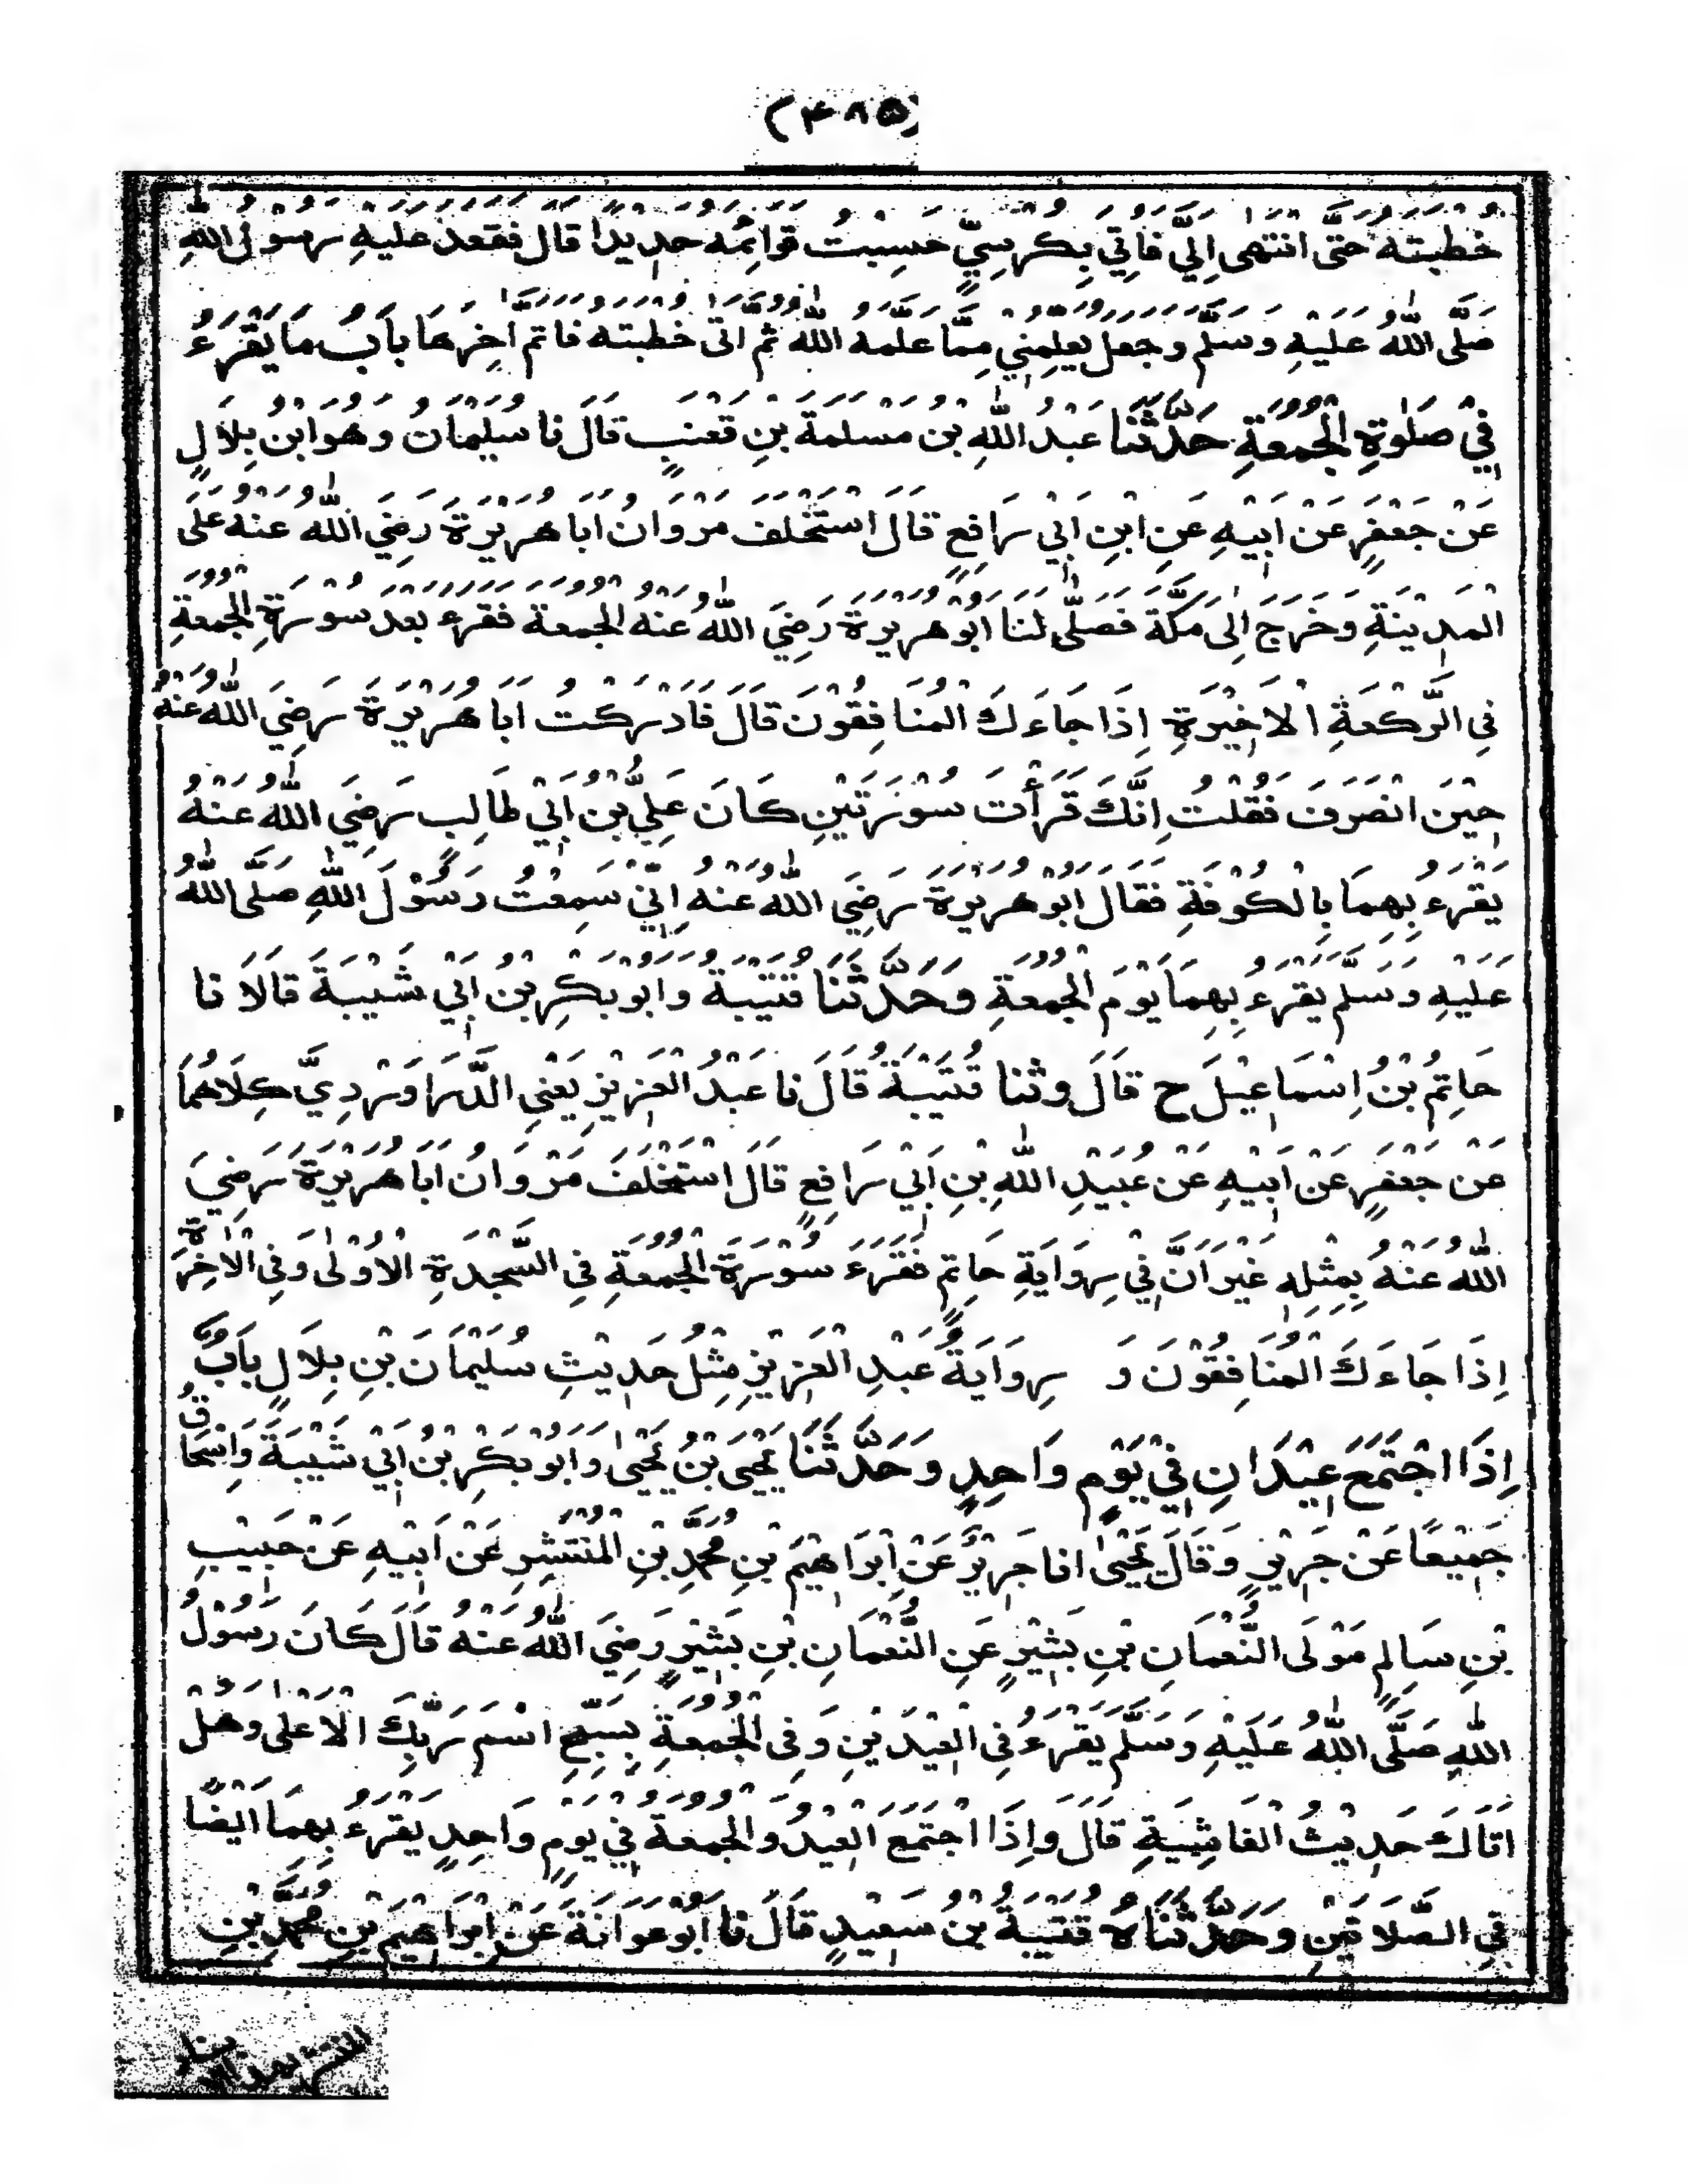 (۴۸۵)
خُطْبَتَهُ حَتَّى انْتَهٰى اِلَيَّ فَاُتِيَ بِكُرْسِيٍّ حَسِبْتُ قَوَائِمَهُ حَدِيْدًا قَالَ فَقَعَدَ عَلَيْهِ رَسُوْلُ اللّٰهِ
صَلَّى اللّٰهُ عَلَيْهِ وَسَلَّمَ وَجَعَلَ يُعَلِّمُنِيْ مِمَّا عَلَّمَهُ اللّٰهُ ثُمَّ اَتٰى خُطْبَتَهُ فَاَتَمَّ اٰخِرَهَا بَابُ مَا يُقْرَءُ
فِيْ صَلٰوةِ الْجُمُعَةِ حَدَّثَنَا عَبْدُ اللّٰهِ بْنُ مَسْلَمَةَ بْنِ قَعْنَبٍ قَالَ نَا سُلَيْمَانُ وَهُوَ ابْنُ بِلَالٍ
عَنْ جَعْفَرٍ عَنْ اَبِيْهِ عَنِ ابْنِ اَبِيْ رَافِعٍ قَالَ اسْتَخْلَفَ مَرْوَانُ اَبَا هُرَيْرَةَ رَضِيَ اللّٰهُ عَنْهُ عَلَى
الْمَدِيْنَةِ وَخَرَجَ اِلٰى مَكَّةَ فَصَلّٰى لَنَا اَبُوْ هُرَيْرَةَ رَضِيَ اللّٰهُ عَنْهُ الْجُمُعَةَ فَقَرَءَ بَعْدَ سُوْرَةِ الْجُمُعَةِ
فِى الرَّكْعَةِ الْاَخِيْرَةِ اِذَا جَاءَكَ الْمُنَافِقُوْنَ قَالَ فَاَدْرَكْتُ اَبَا هُرَيْرَةَ رَضِيَ اللّٰهُ عَنْهُ
حِيْنَ انْصَرَفَ فَقُلْتُ اِنَّكَ قَرَأْتَ سُوْرَتَيْنِ كَانَ عَلِيُّ بْنُ اَبِيْ طَالِبٍ رَضِيَ اللّٰهُ عَنْهُ
يَقْرَءُ بِهِمَا بِالْكُوْفَةِ فَقَالَ اَبُوْ هُرَيْرَةَ رَضِيَ اللّٰهُ عَنْهُ اِنِّيْ سَمِعْتُ رَسُوْلَ اللّٰهِ صَلَّى اللّٰهُ
عَلَيْهِ وَسَلَّمَ يَقْرَءُ بِهِمَا يَوْمَ الْجُمُعَةِ وَحَدَّثَنَا قُتَيْبَةُ وَاَبُوْ بَكْرِ بْنُ اَبِيْ شَيْبَةَ قَالَا نَا
حَاتِمُ بْنُ اِسْمَاعِيْلَ ح قَالَ وَثَنَا قُتَيْبَةُ قَالَ نَا عَبْدُ الْعَزِيْزِ يَعْنِى الدَّرَاوَرْدِيَّ كِلَاهُمَا
عَنْ جَعْفَرٍ عَنْ اَبِيْهِ عَنْ عُبَيْدِ اللّٰهِ بْنِ اَبِيْ رَافِعٍ قَالَ اسْتَخْلَفَ مَرْوَانُ اَبَا هُرَيْرَةَ رَضِيَ
اللّٰهُ عَنْهُ بِمِثْلِهِ غَيْرَ اَنَّ فِيْ رِوَايَةِ حَاتِمٍ فَقَرَءَ سُوْرَةَ الْجُمُعَةِ فِى السَّجْدَةِ الْاُوْلٰى وَفِى الْاٰخِرَةِ
اِذَا جَاءَكَ الْمُنَافِقُوْنَ وَ رِوَايَةُ عَبْدِ الْعَزِيْزِ مِثْلُ حَدِيْثِ سُلَيْمَانَ بْنِ بِلَالٍ بَابٌ
اِذَا اجْتَمَعَ عِيْدَانِ فِيْ يَوْمٍ وَاحِدٍ وَحَدَّثَنَا يَحْيَى بْنُ يَحْيٰى وَاَبُوْ بَكْرِ بْنُ اَبِيْ شَيْبَةَ وَاِسْحَاقُ
جَمِيْعًا عَنْ جَرِيْرٍ وَقَالَ يَحْيٰى اَنَا جَرِيْرٌ عَنْ اِبْرَاهِيْمَ بْنِ مُحَمَّدِ بْنِ الْمُنْتَشِرِ عَنْ اَبِيْهِ عَنْ حَبِيْبِ
بْنِ سَالِمٍ مَوْلَى النُّعْمَانِ بْنِ بَشِيْرٍ عَنِ النُّعْمَانِ بْنِ بَشِيْرٍ رَضِيَ اللّٰهُ عَنْهُ قَالَ كَانَ رَسُوْلُ
اللّٰهِ صَلَّى اللّٰهُ عَلَيْهِ وَسَلَّمَ يَقْرَءُ فِى الْعِيْدَيْنِ وَفِى الْجُمُعَةِ بِسَبِّحِ اسْمَ رَبِّكَ الْاَعْلٰى وَهَلْ
اَتَاكَ حَدِيْثُ الْغَاشِيَةِ قَالَ وَاِذَا اجْتَمَعَ الْعِيْدُ وَالْجُمُعَةُ فِيْ يَوْمٍ وَاحِدٍ يَقْرَءُ بِهِمَا اَيْضًا
فِى الصَّلَاتَيْنِ وَحَدَّثَنَاهُ قُتَيْبَةُ بْنُ سَعِيْدٍ قَالَ نَا اَبُوْ عَوَانَةَ عَنْ اِبْرَاهِيْمَ بْنِ مُحَمَّدِ بْنِ